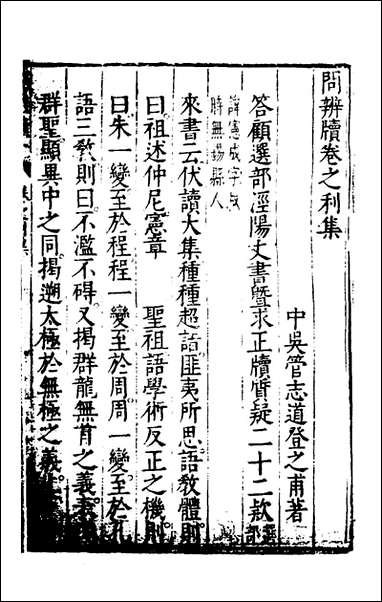 問辨牘卷之利集
中吳管志道登之甫著
答顧選部涇陽丈書暨求正牘質疑二十二款
諱憲成字叔
時無錫縣人
來書云伏讀大集種種超詣匪夷所思語教體則
曰祖述仲尼憲章 聖祖語學術反正之機則
曰朱一變至於程程一變至於周周一變至於孔
語三教則曰不濫不礙又揭群龍無首之義
群聖顯異中之同揭遡太極於無極之義